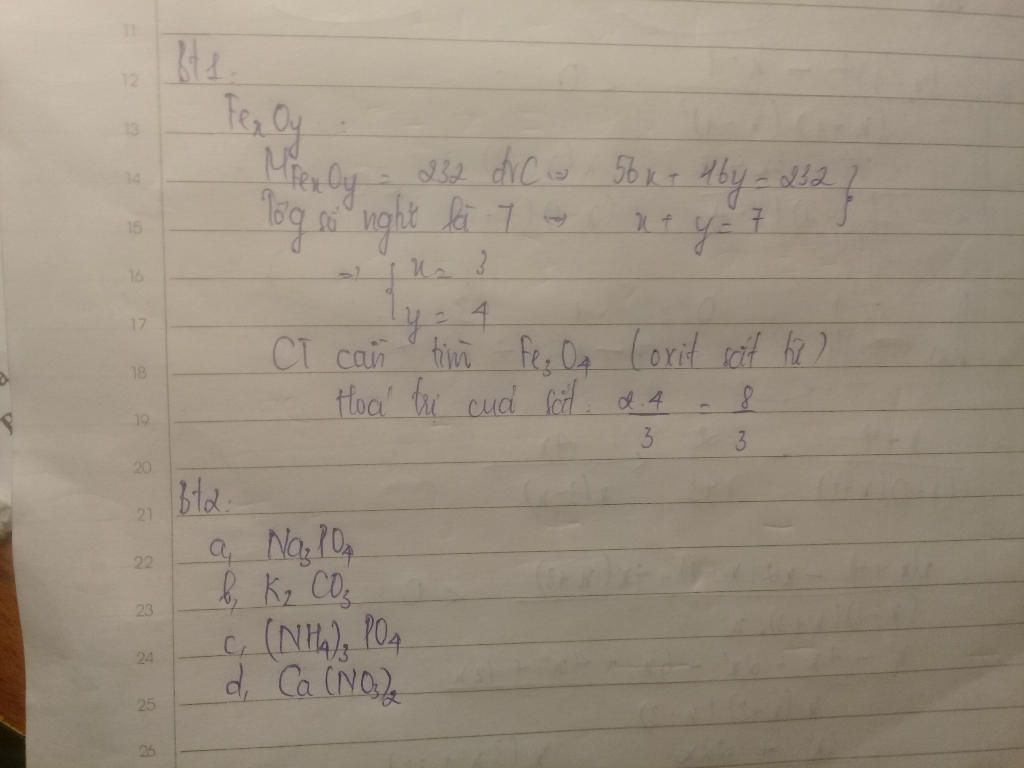 11
12
Bt1:
13
FexOy :
14
MFexOy = 232 đvC => 56x + 16y = 232 }
15
Tổg số nghtử là 7 => x + y = 7
16
=> { x = 3
17
y = 4
18
CT cần tìm Fe3O4 (oxit sắt từ)
19
Hoá trị của sắt: 2.4/3 = 8/3
20
21
Bt2:
22
a, Na3PO4
23
b, K2CO3
24
c, (NH4)3PO4
25
d, Ca(NO3)2
26